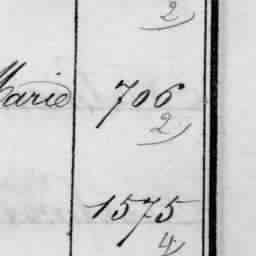 2
Marie 706
2
1575
4